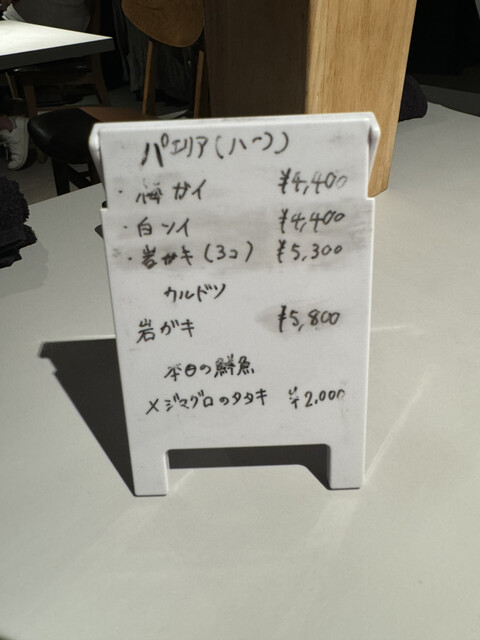 パエリア(ハーフ)
・梅ガイ ¥4,400
・白ンイ ¥4,400
・岩ガキ(3コ) ¥5,300
カルドソ
岩ガキ ¥5,800
本日の鮮魚
メジマグロのタタキ ¥2,000